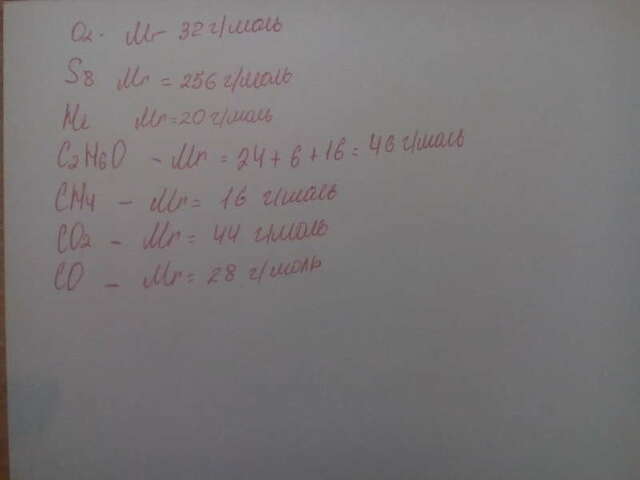 O2 - Mr 32 г/моль
S8 Mr = 256 г/моль
Ne Mr = 20 г/моль
C2H6O - Mr = 24 + 6 + 16 = 46 г/моль
CH4 - Mr = 16 г/моль
CO2 - Mr = 44 г/моль
CO - Mr = 28 г/моль